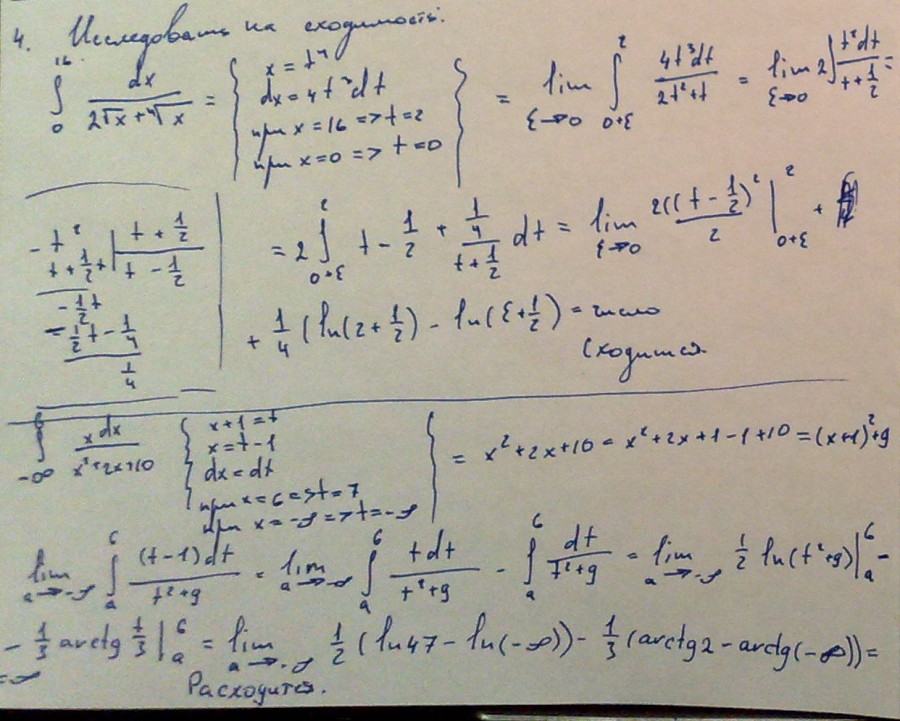 4. Исследовать на сходимость:
∫₀¹⁶ dx/(2√x + ⁴√x) = { x = t⁴
dx = 4t³dt
при x = 16 => t = 2
при x = 0 => t = 0 } = lim_{ε→0} ∫_{0+ε}^{2} 4t³dt/(2t²+t) = lim_{ε→0} 2∫ t²dt/(t+½) =
- t² | t + ½
t + ½t | t - ½
-½t
-½t - ¼
¼
= 2∫_{0+ε}^{2} t - ½ + ¼/(t+½) dt = lim_{ε→0} 2((t - ½)²/2 |_{0+ε}^{2} +
+ ¼ (ln(2+½) - ln(ε+½)) = число
Сходится.
∫_{-∞}^{6} xdx/(x²+2x+10) { x+1 = t
x = t-1
dx = dt
при x = 6 => t = 7
при x = -∞ => t = -∞ } = x²+2x+10 = x²+2x+1-1+10 = (x+1)²+9
lim_{a→-∞} ∫_{a}^{6} (t-1)dt/(t²+9) = lim_{a→-∞} ∫_{a}^{6} tdt/(t²+9) - ∫_{a}^{6} dt/(t²+9) = lim_{a→-∞} ½ ln(t²+9)|_{a}^{6} -
- ⅓ arctg t/3 |_{a}^{6} = lim_{a→-∞} ½ (ln47 - ln(-∞)) - ⅓ (arctg2 - arctg(-∞)) =
= -∞
Расходится.